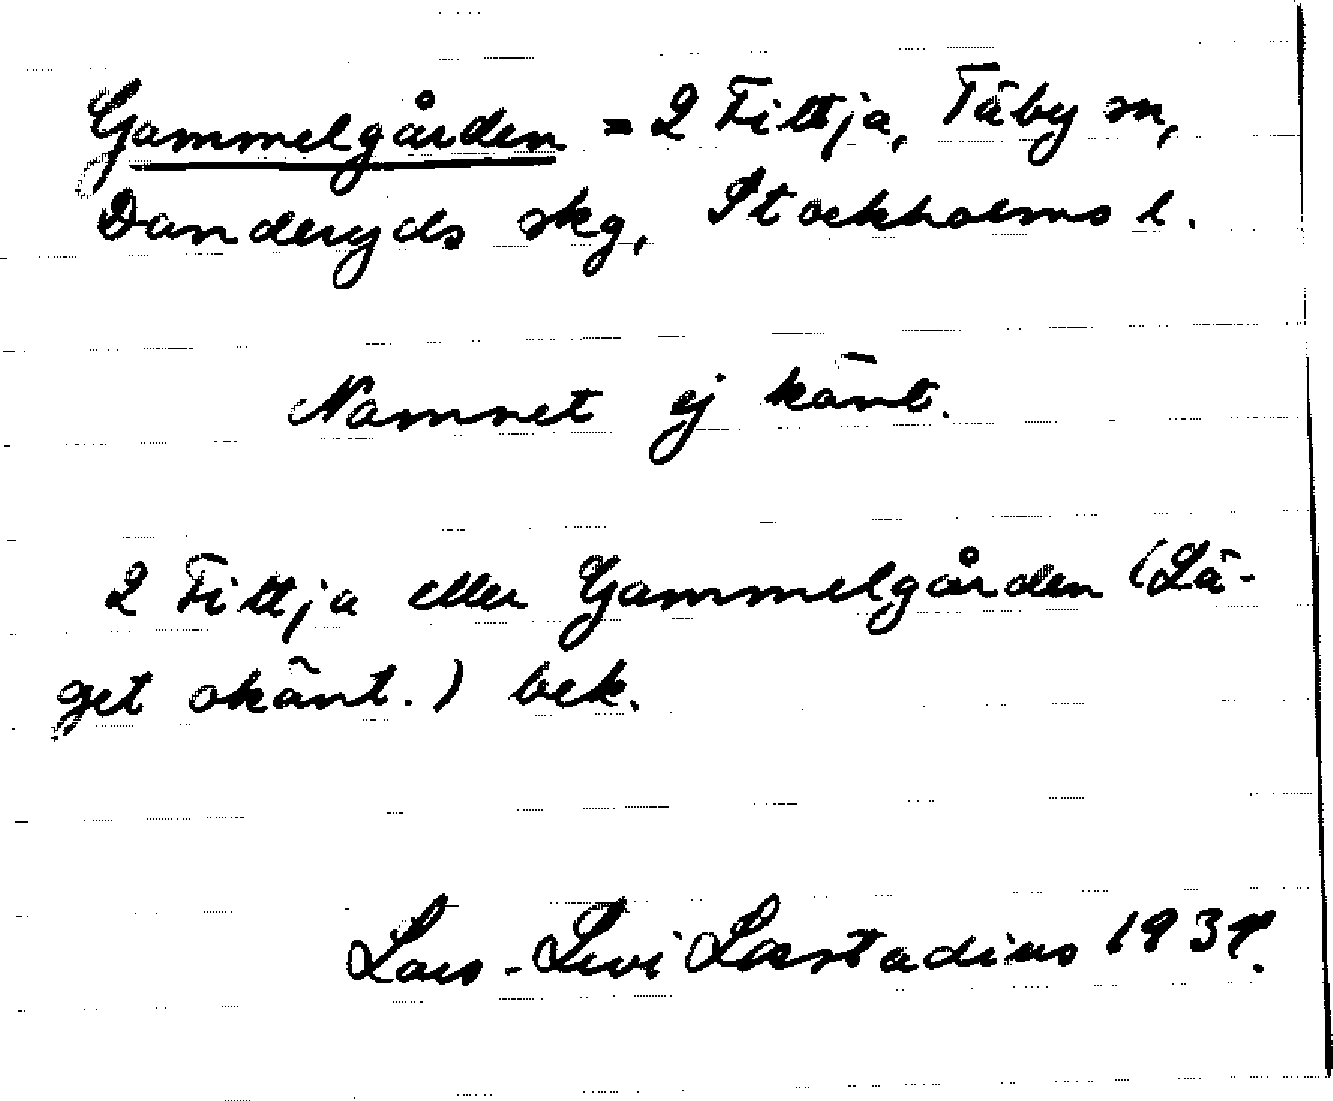 Gammelgården = 2 Fittja, Täby sn,
Danderyds skg, Stockholms l.
Namnet ej känt.
2 Fittja eller Gammelgården (Lä-
get okänt.) bek.
Lars-Levi Læstadius